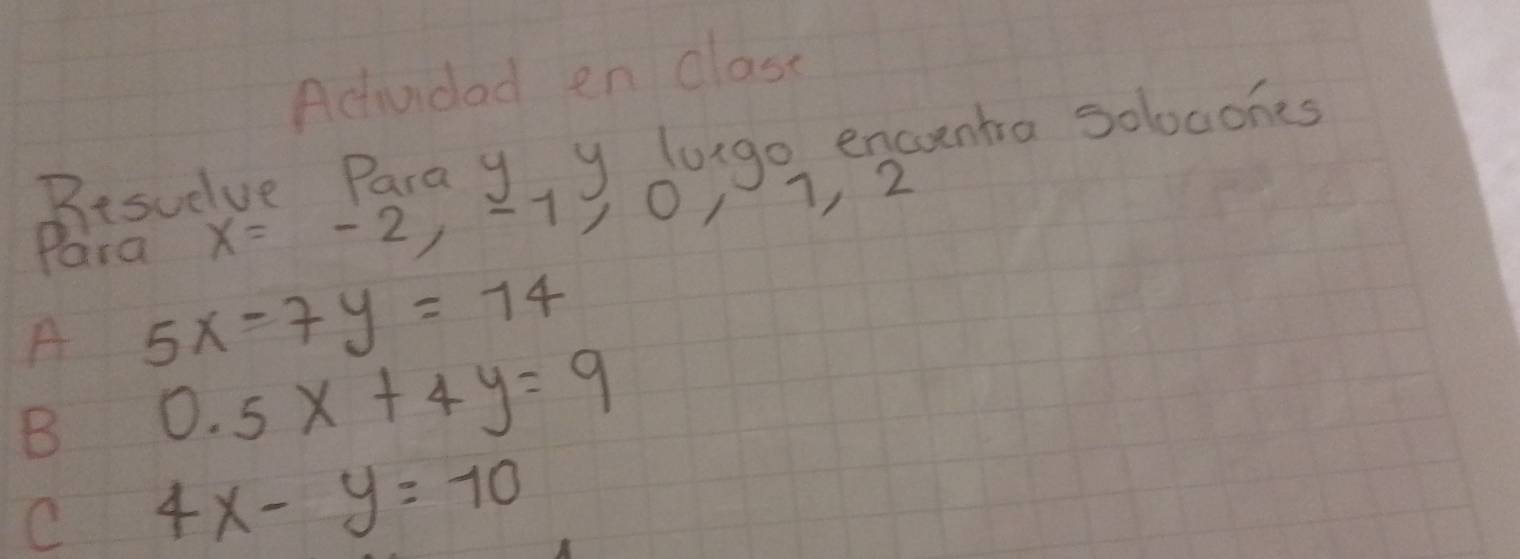 Actividad en clase
Resuelve Para y, y luego encuentra soluciones
Para x= -2, -1, 0, 1, 2
A 5x-7y = 14
B 0.5x + 4y= 9
C 4x- y= 10